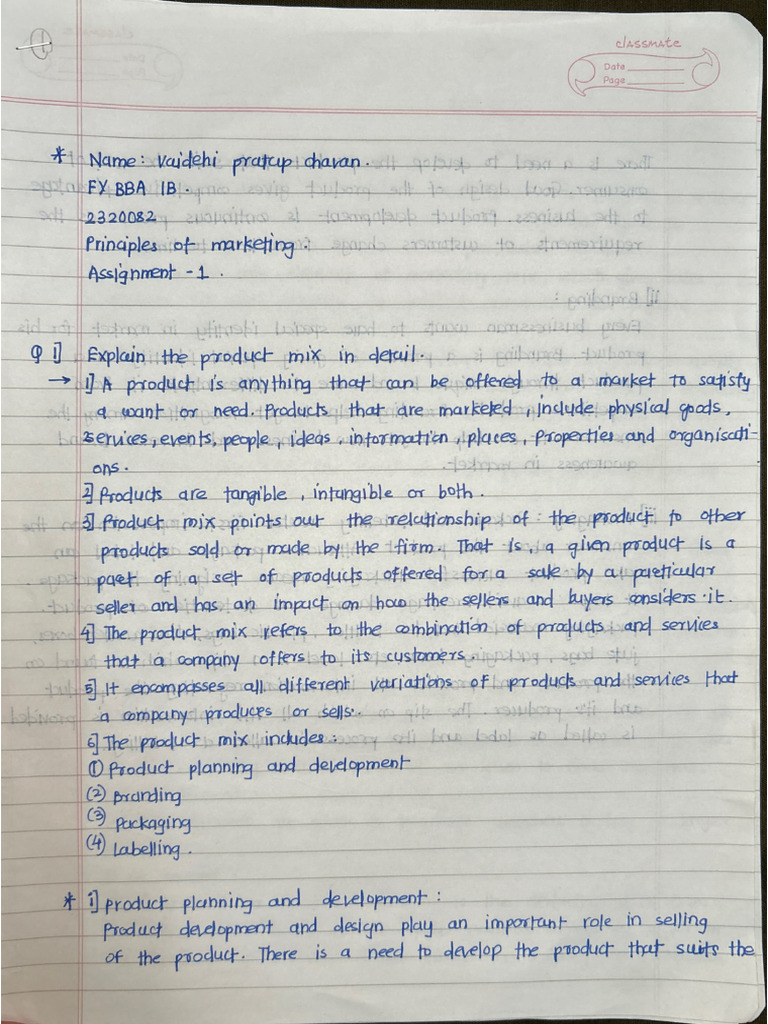 1
classmate
Date
Page
* Name: Vaidehi pratap chavan.
FY BBA IB.
2320082
Principles of marketing.
Assignment - 1.
Q 1] Explain the product mix in detail.
→ 1] A product is anything that can be offered to a market to satisfy
a want or need. Products that are marketed, include physical goods,
services, events, people, ideas, information, places, properties and organisati-
ons.
2] Products are tangible, intangible or both.
3] Product mix points out the relationship of the product to other
products sold or made by the firm. That is, a given product is a
part of a set of products offered for a sale by a particular
seller and has an impact on how the sellers and buyers considers it.
4] The product mix refers to the combination of products and services
that a company offers to its customers.
5] It encompasses all different variations of products and services that
a company produces or sells.
6] The product mix includes:
① Product planning and development
(2) Branding
(3) Packaging
(4) Labelling.
* i] product planning and development:
Product development and design play an important role in selling
of the product. There is a need to develop the product that suits the